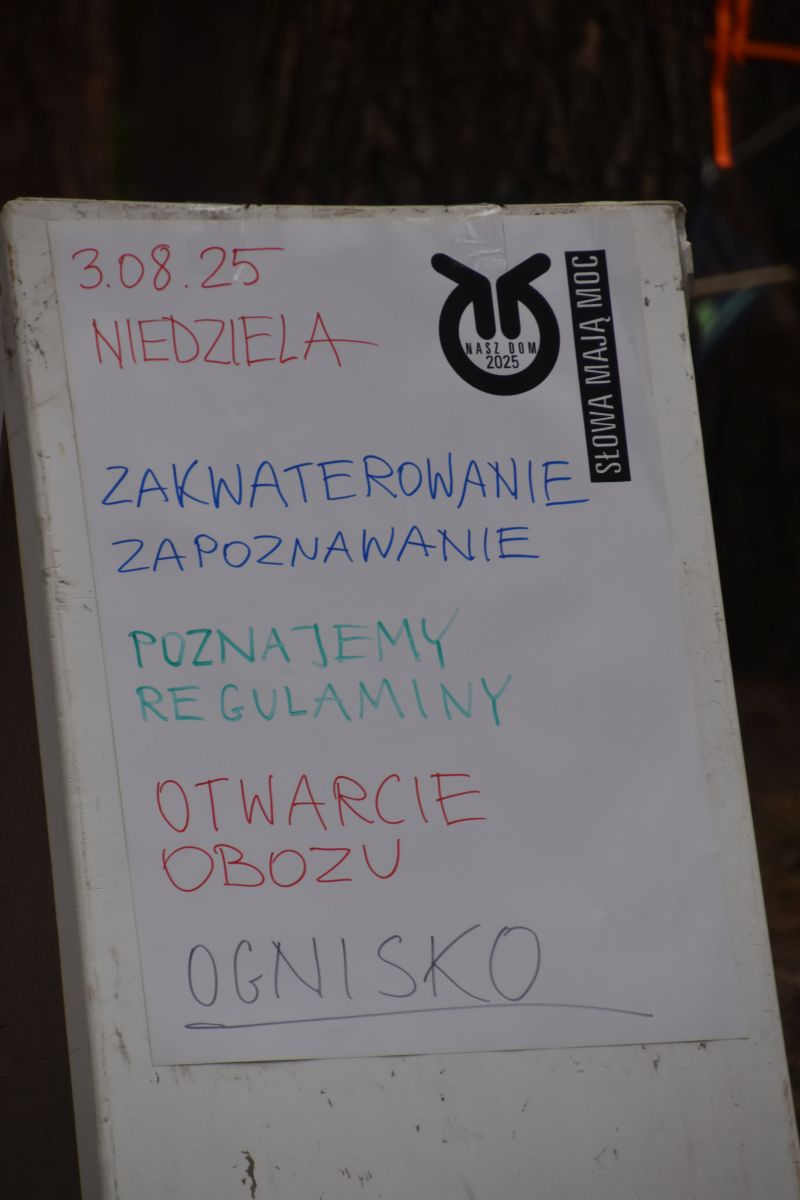 3.08.25
NIEDZIELA
NASZ DOM
2025
SŁOWA MAJĄ MOC
ZAKWATEROWANIE
ZAPOZNAWANIE
POZNAJEMY
REGULAMINY
OTWARCIE
OBOZU
OGNISKO